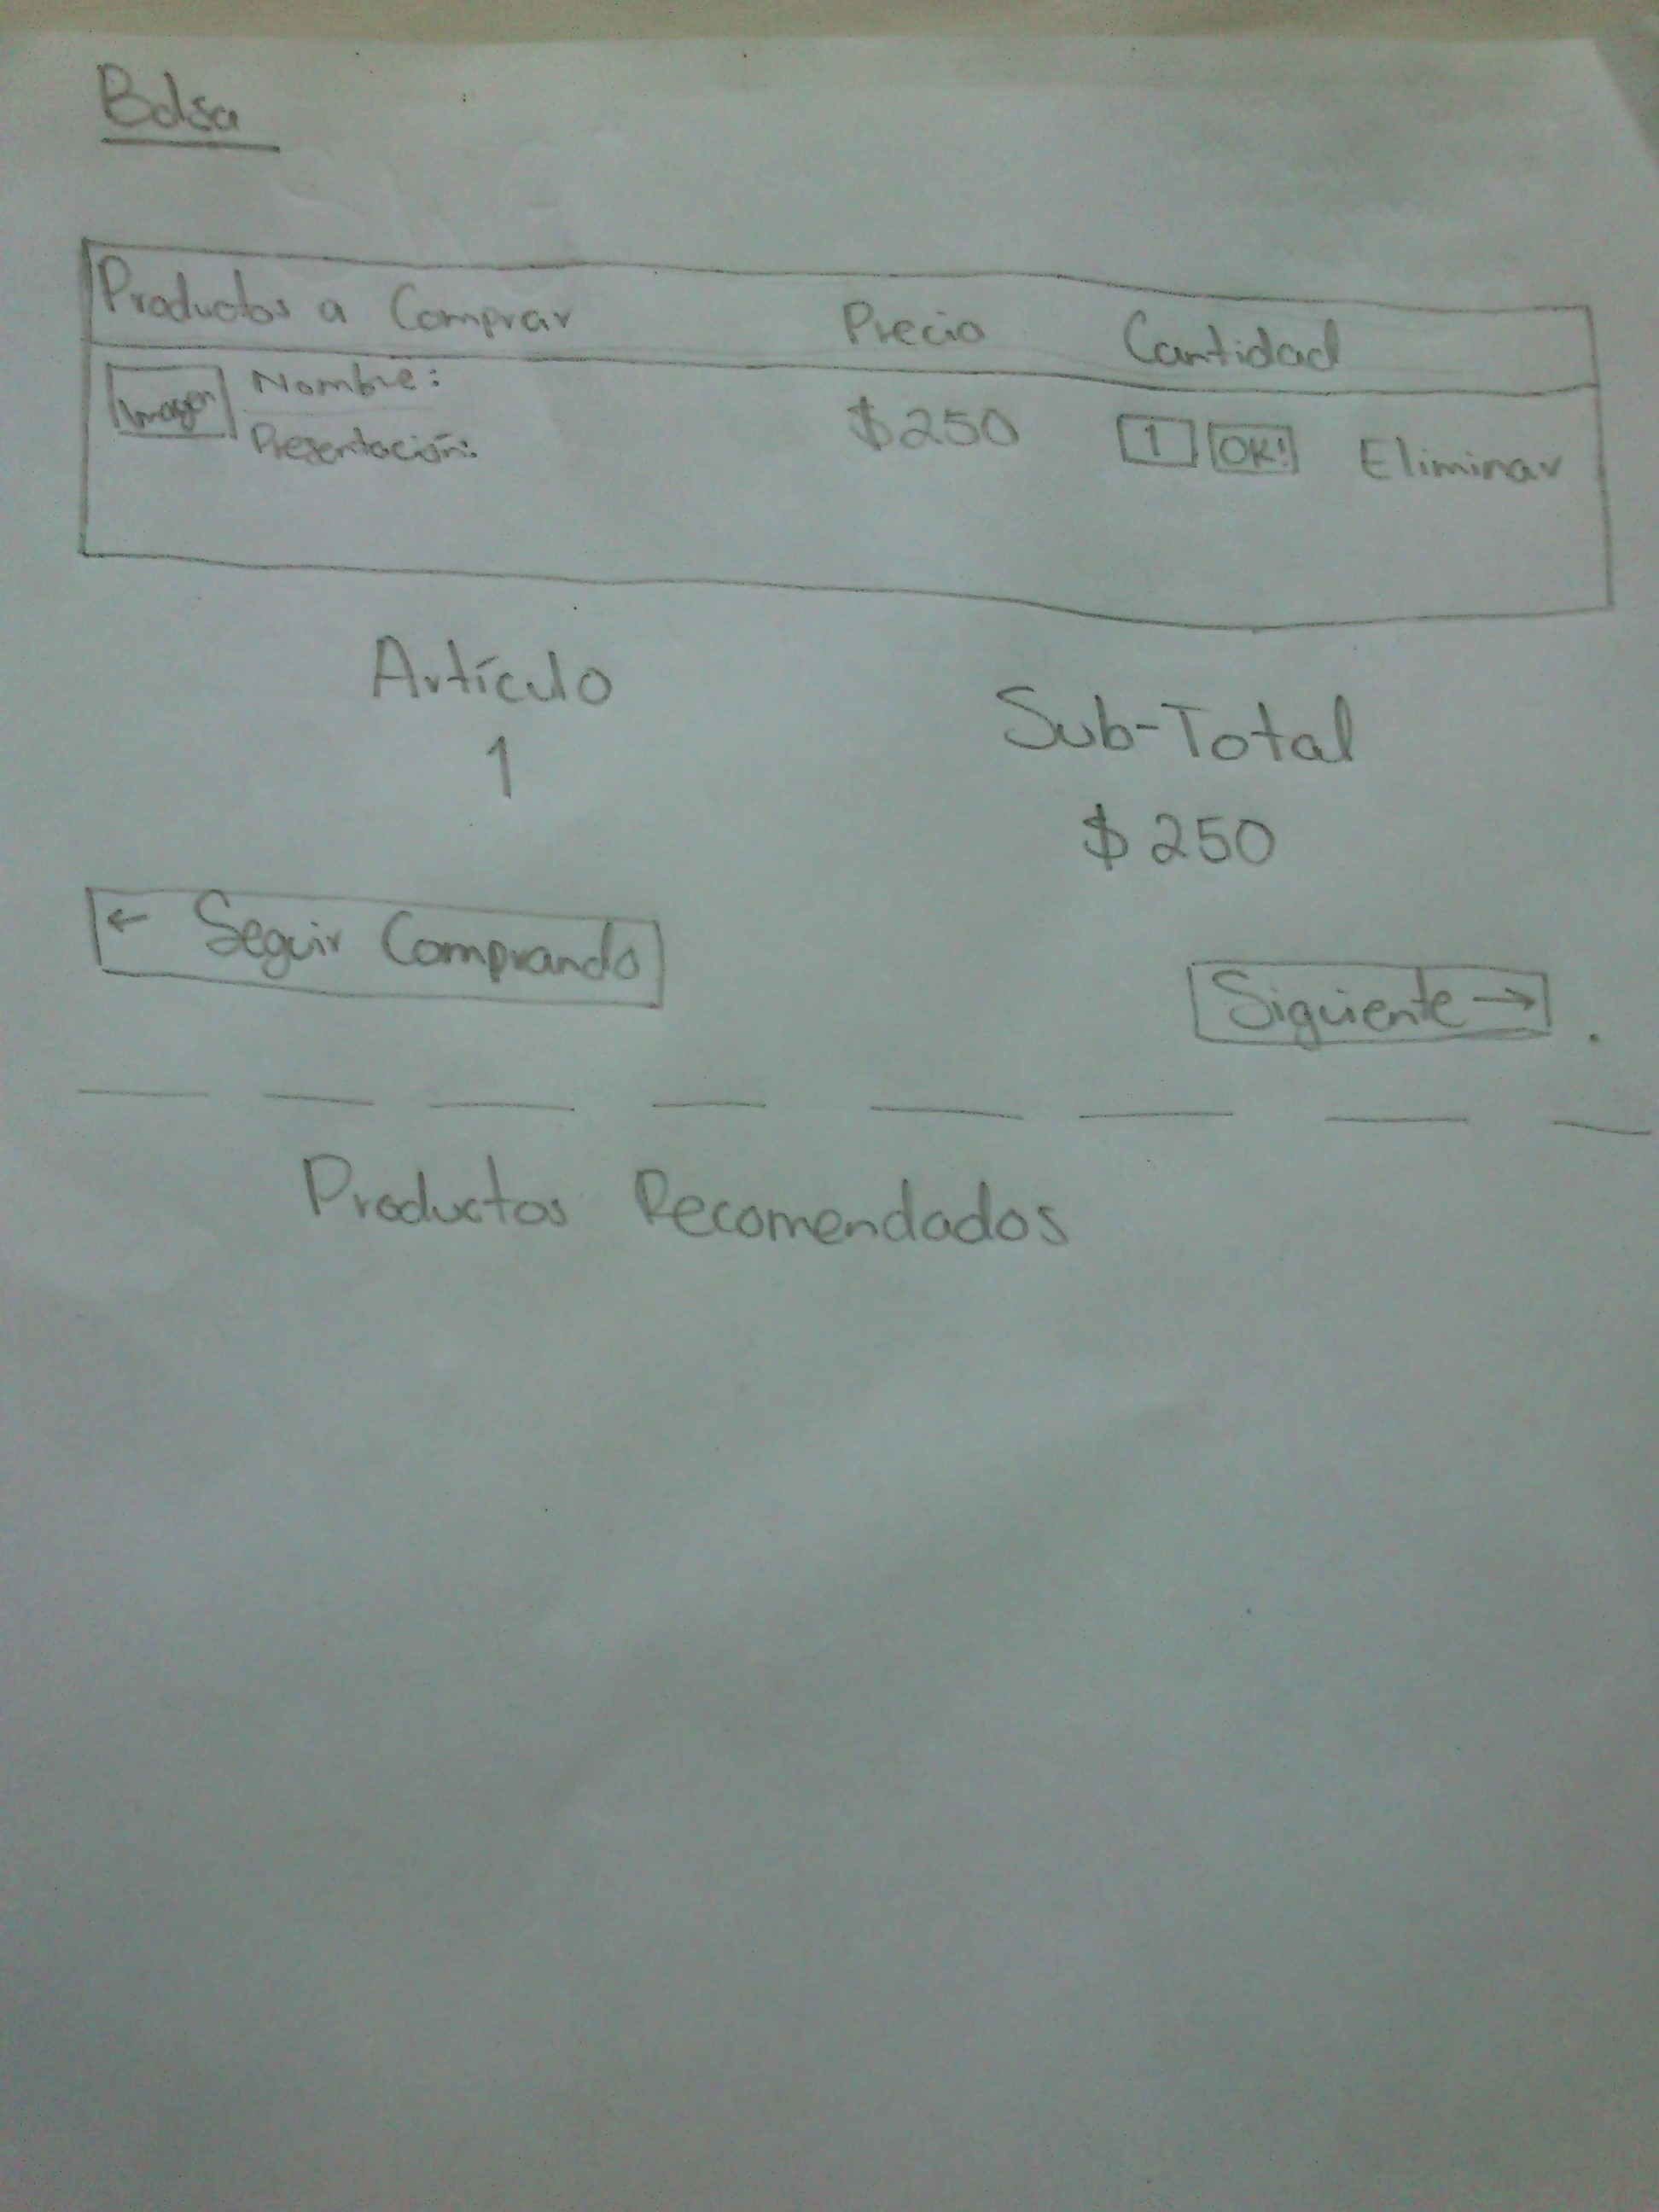 Bolsa
Productos a Comprar Precio Cantidad
Imagen Nombre: $250 1 OK! Eliminar
Presentación:
Artículo Sub-Total
1 $250
← Seguir Comprando Siguiente →
Productos Recomendados